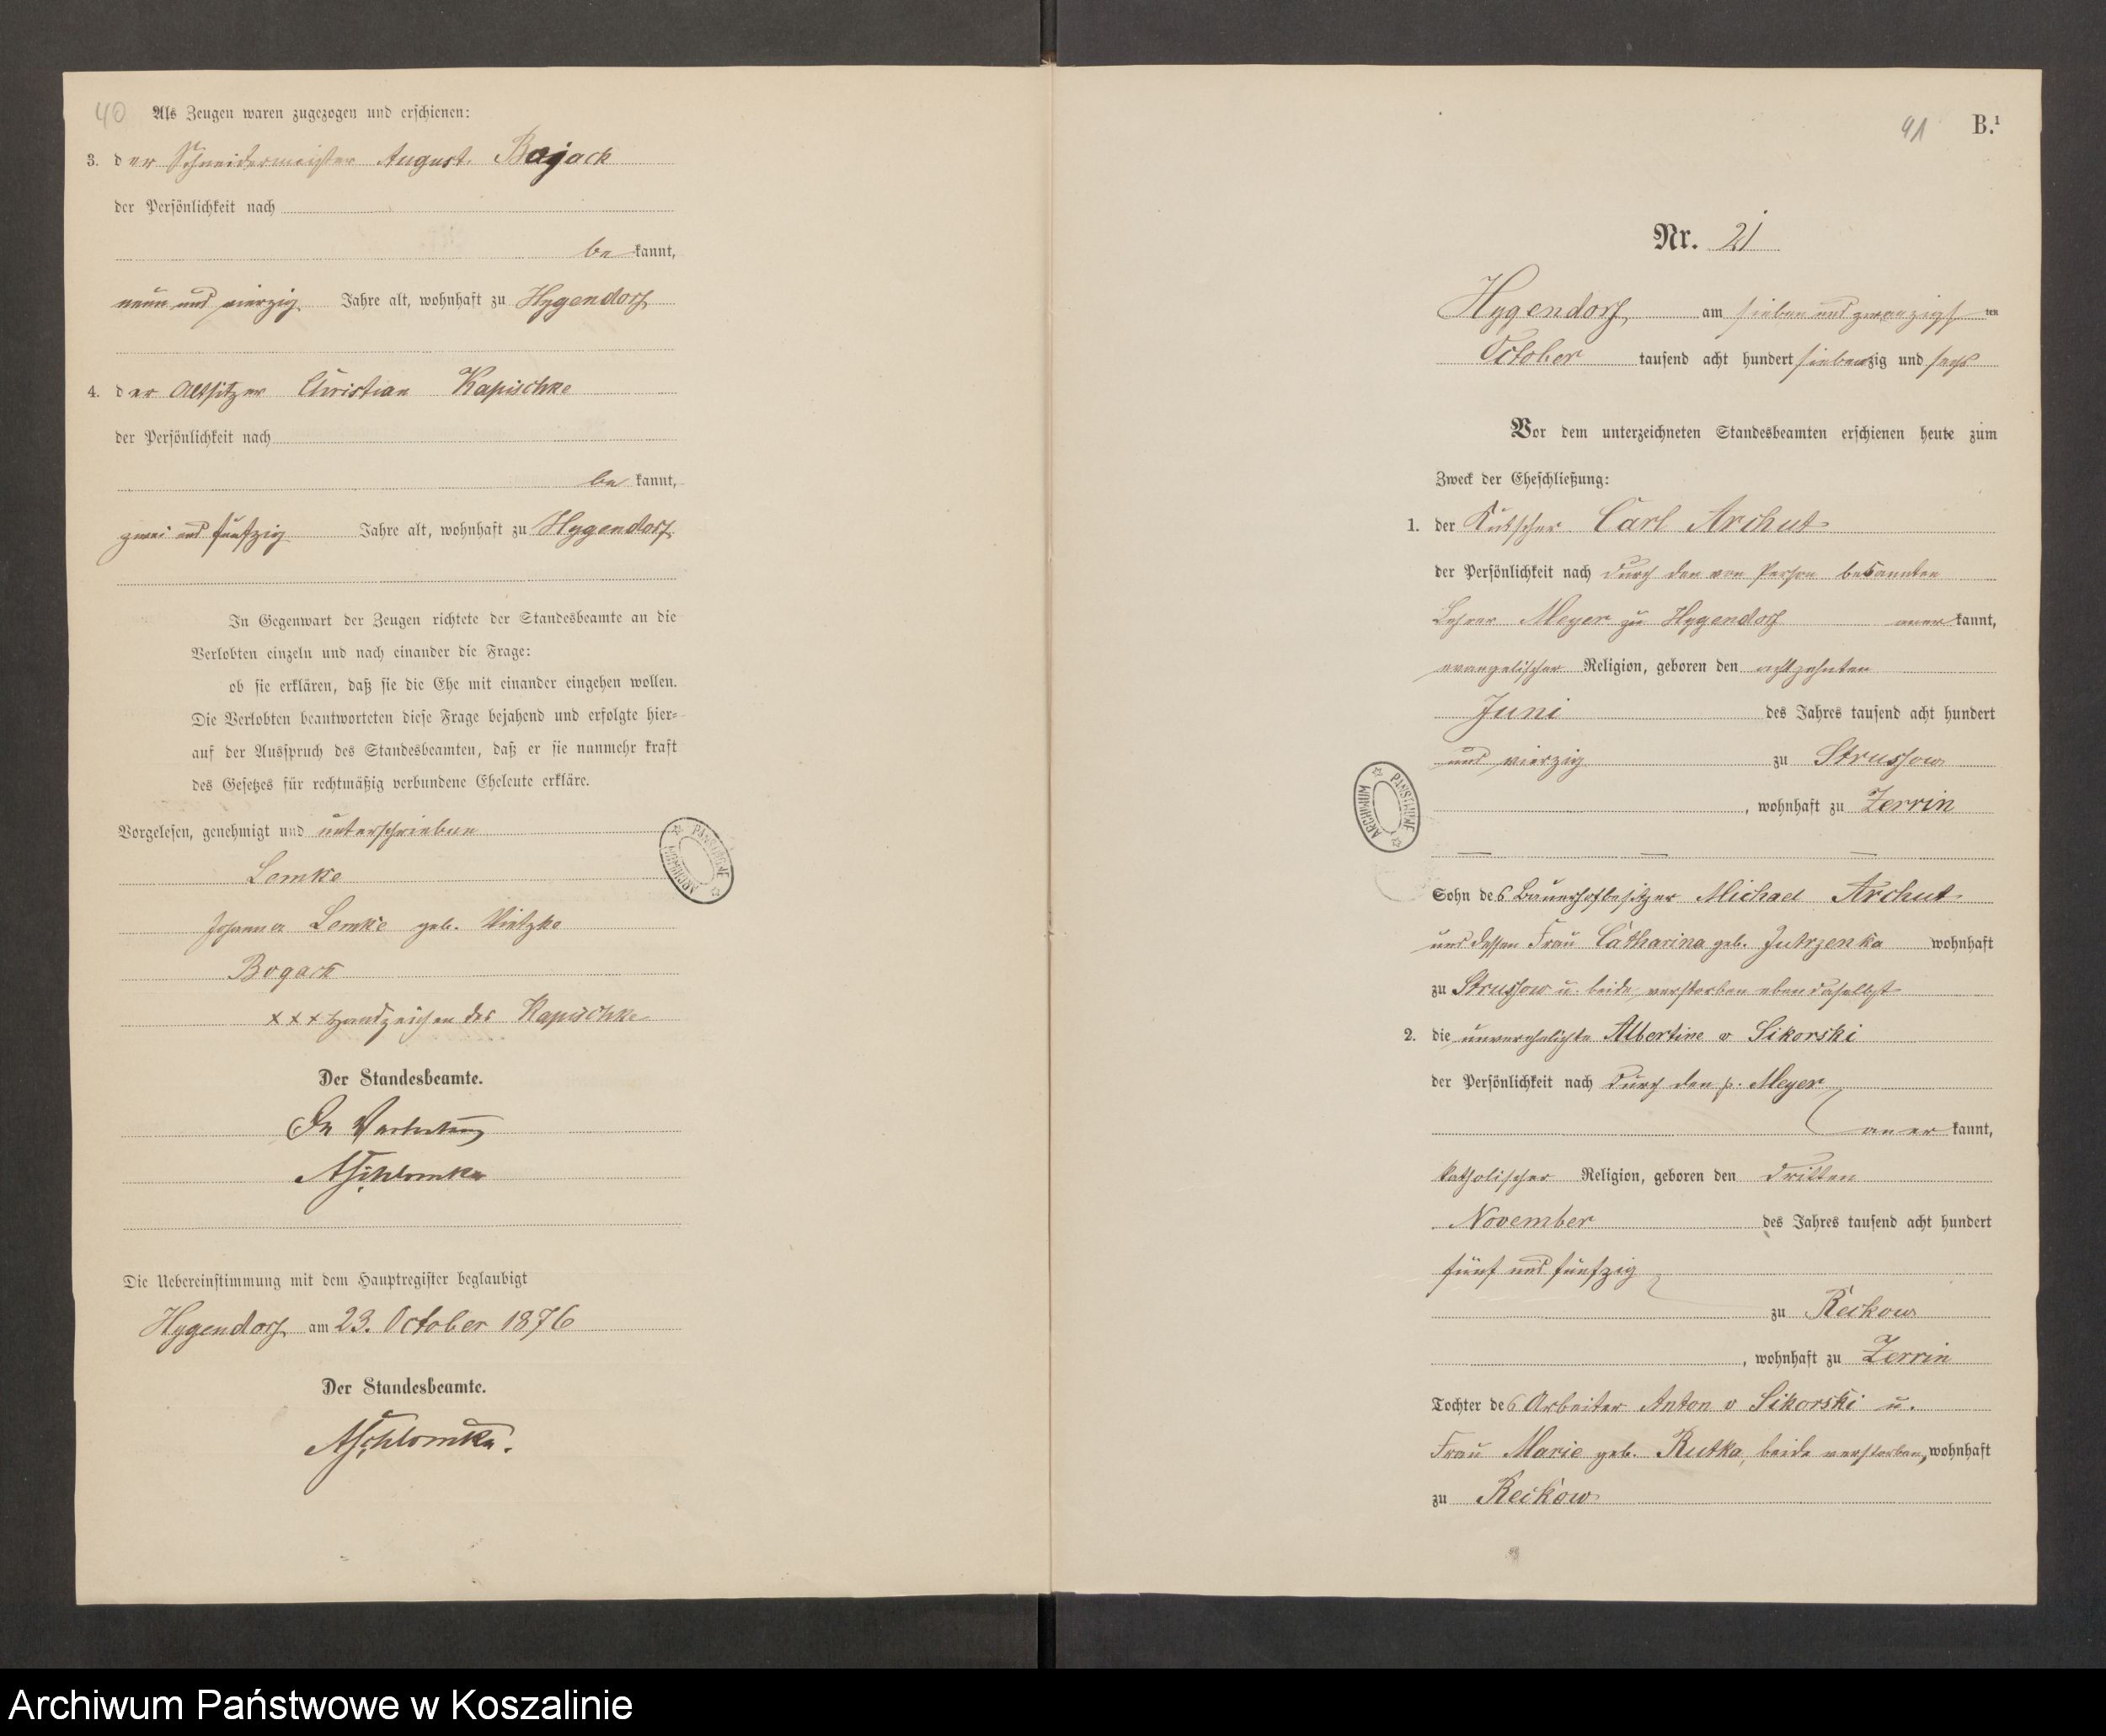 40
Als Zeugen waren zugezogen und erschienen:
3. der Schneidermeister August Bojack
der Persönlichkeit nach
be kannt,
neun und vierzig Jahre alt, wohnhaft zu Hygendorf
4. der Altsitzer Christian Kapischke
der Persönlichkeit nach
be kannt,
zwei und fünfzig Jahre alt, wohnhaft zu Hygendorf
In Gegenwart der Zeugen richtete der Standesbeamte an die
Verlobten einzeln und nach einander die Frage:
ob sie erklären, daß sie die Ehe mit einander eingehen wollen.
Die Verlobten beantworteten diese Frage bejahend und erfolgte hier=
auf der Ausspruch des Standesbeamten, daß er sie nunmehr kraft
des Gesetzes für rechtmäßig verbundene Eheleute erkläre.
Vorgelesen, genehmigt und unterschrieben
Lemke
Johanna Lemke geb. Vietzke
Bogack
××× Handzeichen des Kapischke
Der Standesbeamte.
In Vertretung
Die Uebereinstimmung mit dem Hauptregister beglaubigt
Hygendorf am 23. October 1876
Der Standesbeamte.
ARCHIWUM PAŃSTWOWE
41
B.¹
Nr. 21
Hygendorf, am sieben und zwanzigsten
October tausend acht hundert siebenzig und sechs
Vor dem unterzeichneten Standesbeamten erschienen heute zum
Zweck der Eheschließung:
1. der Kutscher Carl Archut
der Persönlichkeit nach durch den von Person bekannten
Lehrer Meyer zu Hygendorf anerkannt,
evangelischer Religion, geboren den achtzehnten
Juni des Jahres tausend acht hundert
und vierzig zu Strussow
, wohnhaft zu Zerrin
Sohn des Bauerhofbesitzer Michael Archut
und dessen Frau Catharina geb. Jutrzenka wohnhaft
zu Strussow u. beide verstorben ebendaselbst
2. die unverehelichte Albertine v Sikorski
der Persönlichkeit nach durch den p. Meyer
anerkannt,
katholischer Religion, geboren den dritten
November des Jahres tausend acht hundert
fünf und fünfzig
zu Reckow
, wohnhaft zu Zerrin
Tochter des Arbeiter Anton v Sikorski u.
Frau Marie geb. Rutka, beide verstorben, wohnhaft
zu Reckow
ARCHIWUM PAŃSTWOWE
Archiwum Państwowe w Koszalinie